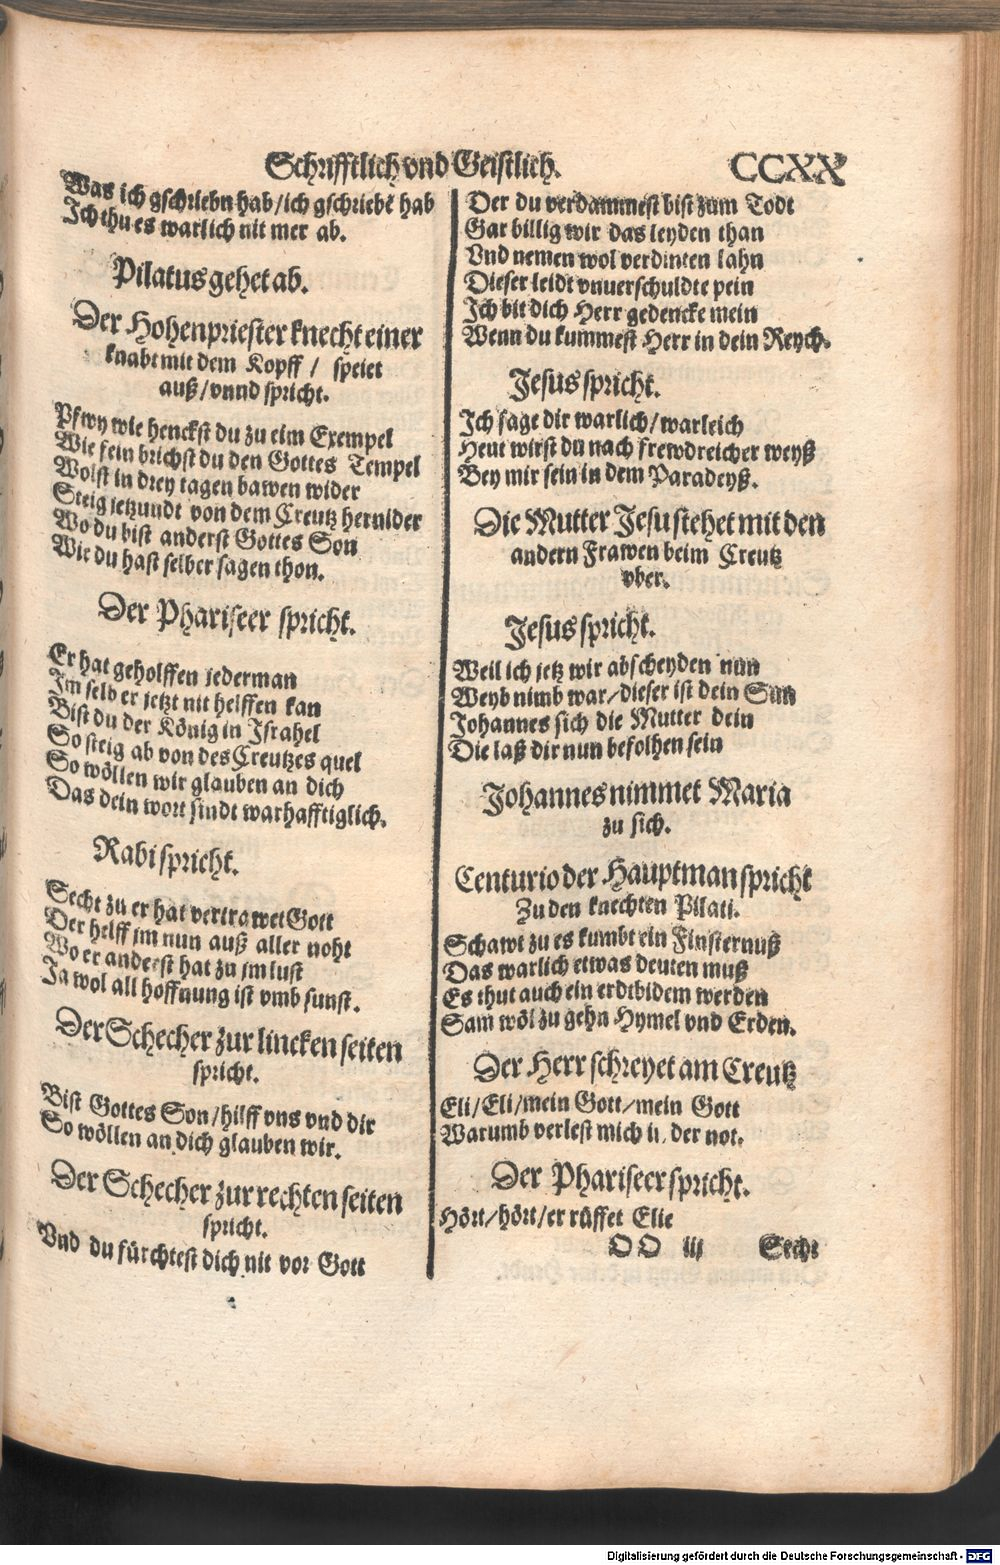 Schrifftlich vnd Geistlich.
CCXX
Was ich gschriebn hab/ich gschriebē hab
Ich thu es warlich nit mer ab.
Pilatus gehet ab.
Der Hohenpriester knecht einer
knabt mit dem Kopff / speiet
auß/vnnd spricht.
Pfwy wie henckst du zu eim Exempel
Wie fein brichst du den Gottes Tempel
Wolst in drey tagen bawen wider
Steig jetzundt von dem Creutz hernider
Wo du bist anderst Gottes Son
Wie du hast selber sagen thon.
Der Phariseer spricht.
Er hat geholffen jederman
Im selb er jetzt nit helffen kan
Bist du der König in Israhel
So steig ab von des Creutzes quel
So wöllen wir glauben an dich
Das dein wort sindt warhafftiglich.
Rabi spricht.
Secht zu er hat vertrawet Gott
Der helff jm nun auß aller noht
Wo er anderst hat zu jm lust
Ja wol all hoffnung ist vmb sunst.
Der Schecher zur lincken seiten
spricht.
Bist Gottes Son/hilff vns vnd dir
So wöllen an dich glauben wir.
Der Schecher zur rechten seiten
spricht.
Vnd du fürchtest dich nit vor Gott
Der du verdammest bist zum Todt
Gar billig wir das leyden than
Vnd nemen wol verdinten lahn
Dieser leidt vnuerschuldte pein
Ich bit dich Herr gedencke mein
Wenn du kummest Herr in dein Reych.
Jesus spricht.
Ich sage dir warlich/warleich
Heut wirst du nach frewdreicher weyß
Bey mir sein in dem Paradeyß.
Die Mutter Jesu stehet mit den
andern Frawen beim Creutz
vber.
Jesus spricht.
Weil ich jetz wir abscheyden nun
Weyb nimb war/dieser ist dein Sun
Johannes sich die Mutter dein
Die laß dir nun befolhen sein
Johannes nimmet Maria
zu sich.
Centurio der Hauptman spricht
Zu den knechten Pilati.
Schawt zu es kumbt ein Finsternuß
Das warlich etwas deuten muß
Es thut auch ein erdtbidem werden
Sam wöl zu gehn Hymel vnd Erden.
Der Herr schreyet am Creutz
Eli/Eli/mein Gott/mein Gott
Warumb verlest mich der not.
Der Phariseer spricht.
Hört/hört/er rüffet Elie
OO iii
Secht
Digitalisierung gefördert durch die Deutsche Forschungsgemeinschaft - DFG